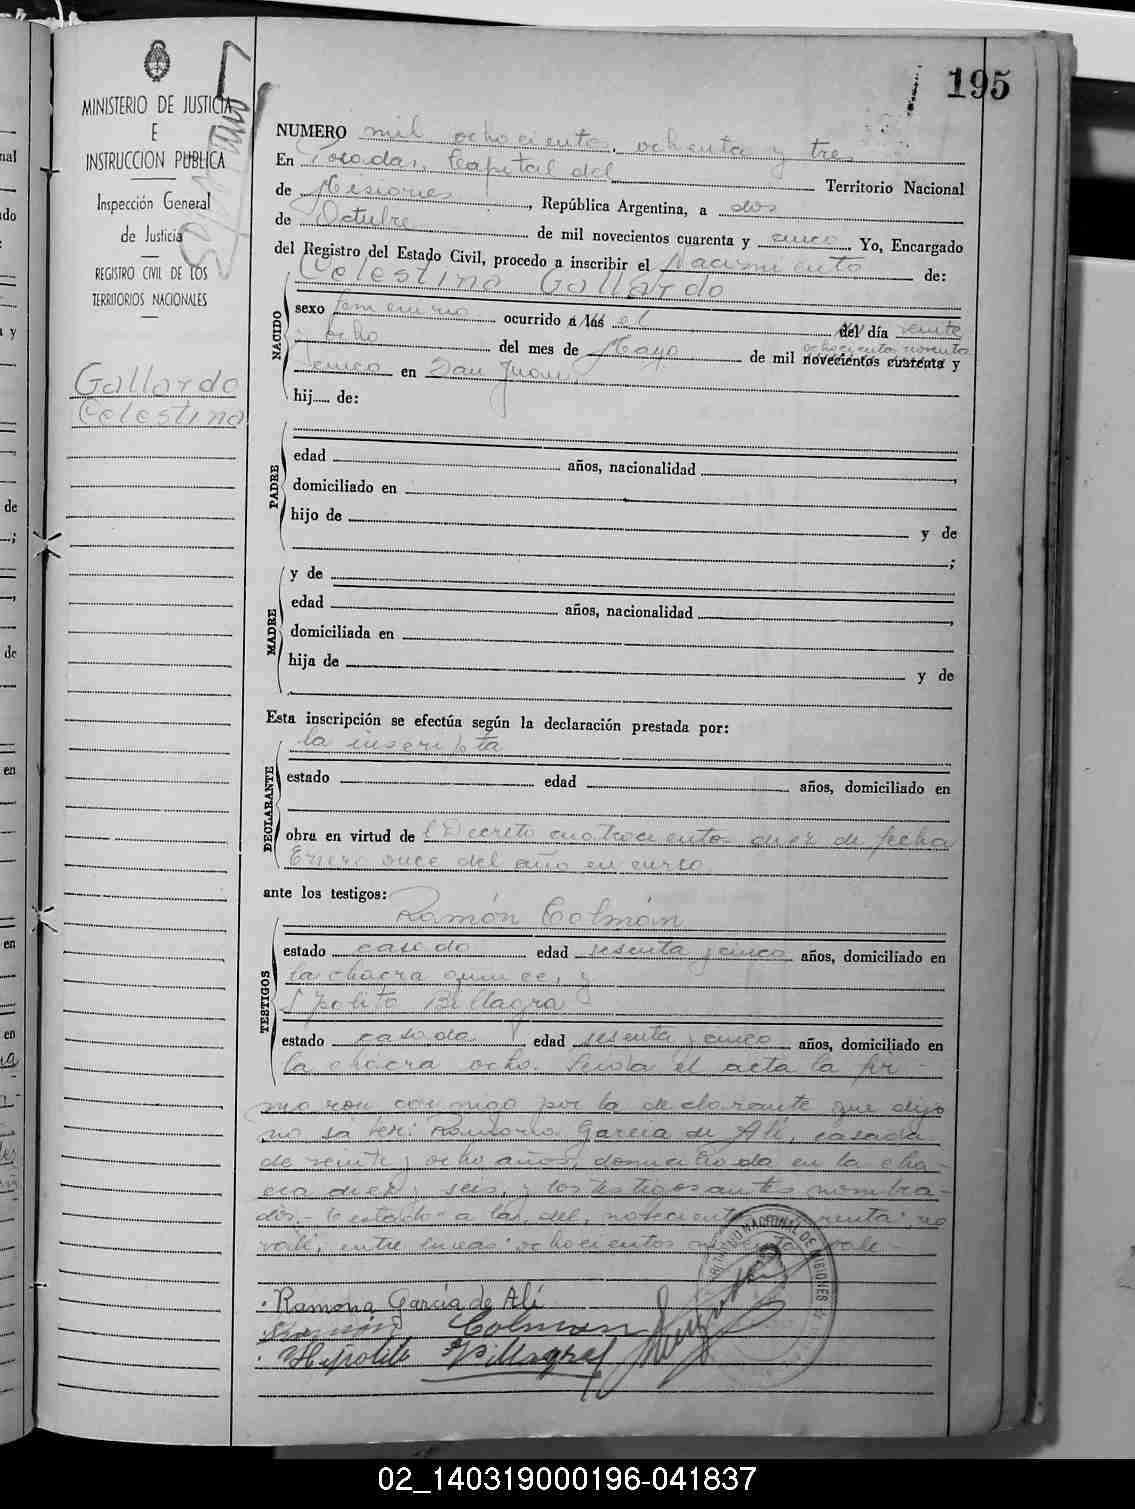 195
MINISTERIO DE JUSTICIA
E
INSTRUCCION PUBLICA
Inspección General
de Justicia
REGISTRO CIVIL DE LOS
TERRITORIOS NACIONALES
Gallardo
Celestina
NUMERO mil ochocientos ochenta y tres
En Posadas, Capital del Territorio Nacional
de Misiones, República Argentina, a dos
de Octubre de mil novecientos cuarenta y cinco Yo, Encargado
del Registro del Estado Civil, procedo a inscribir el Nacimiento de:
NACIDO
Celestina Gallardo
sexo femenino ocurrido a las el del día veinte
ocho del mes de Mayo de mil novecientos cuarenta y
ochocientos noventa
cinco en San Juan
hij de:
PADRE
edad años, nacionalidad
domiciliado en
hijo de y de
;
MADRE
y de
edad años, nacionalidad
domiciliada en
hija de y de
Esta inscripción se efectúa según la declaración prestada por:
DECLARANTE
la inscripta
estado edad años, domiciliado en
obra en virtud de l Decreto cuatrocientos diez de fecha
Enero once del año en curso
ante los testigos:
TESTIGOS
Ramón Colmán
estado casado edad sesenta y cinco años, domiciliado en
la chacra quince, y
Ipolito Billagra
estado casado edad sesenta y cinco años, domiciliado en
la chacra ocho. Leída el acta la fir-
maron conmigo por la declarante que dijo
no saber: Ramona Garcia de Alí, casada
de veinte y ocho años, domiciliada en la cha-
cra diez y seis, y los testigos antes nombra-
dos.- Testado- a las, del, novecientos no
vale, entre lineas: ochocientos vale.-
TERRITORIO NACIONAL DE MISIONES
Ramona García de Alí
Ramón Colman
Hipolito Villagra
02_140319000196-041837